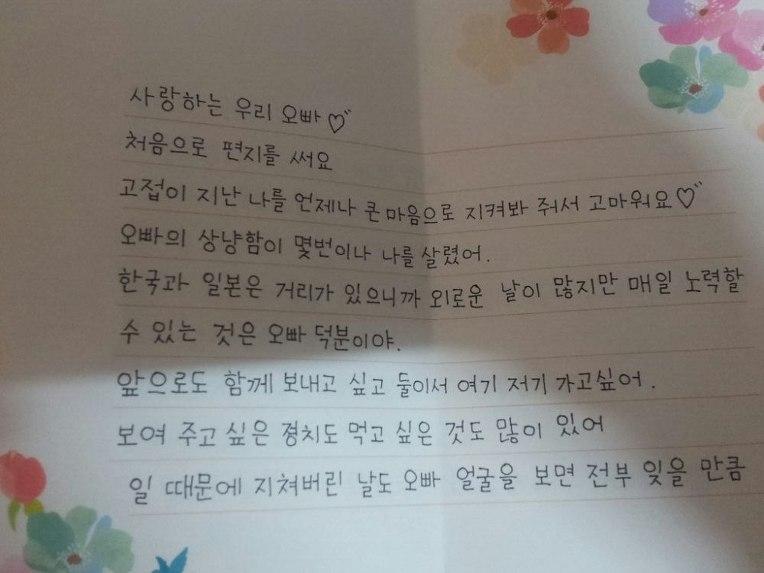 사랑하는 우리 오빠♡
처음으로 편지를 써요
고접이 지난 나를 언제나 큰 마음으로 지켜봐 줘서 고마워요♡
오빠의 상냥함이 몇번이나 나를 살렸어.
한국과 일본은 거리가 있으니까 외로운 날이 많지만 매일 노력할
수 있는 것은 오빠 덕분이야.
앞으로도 함께 보내고 싶고 둘이서 여기 저기 가고싶어.
보여 주고 싶은 경치도 먹고 싶은 것도 많이 있어
일 때문에 지쳐버린 날도 오빠 얼굴을 보면 전부 잊을 만큼